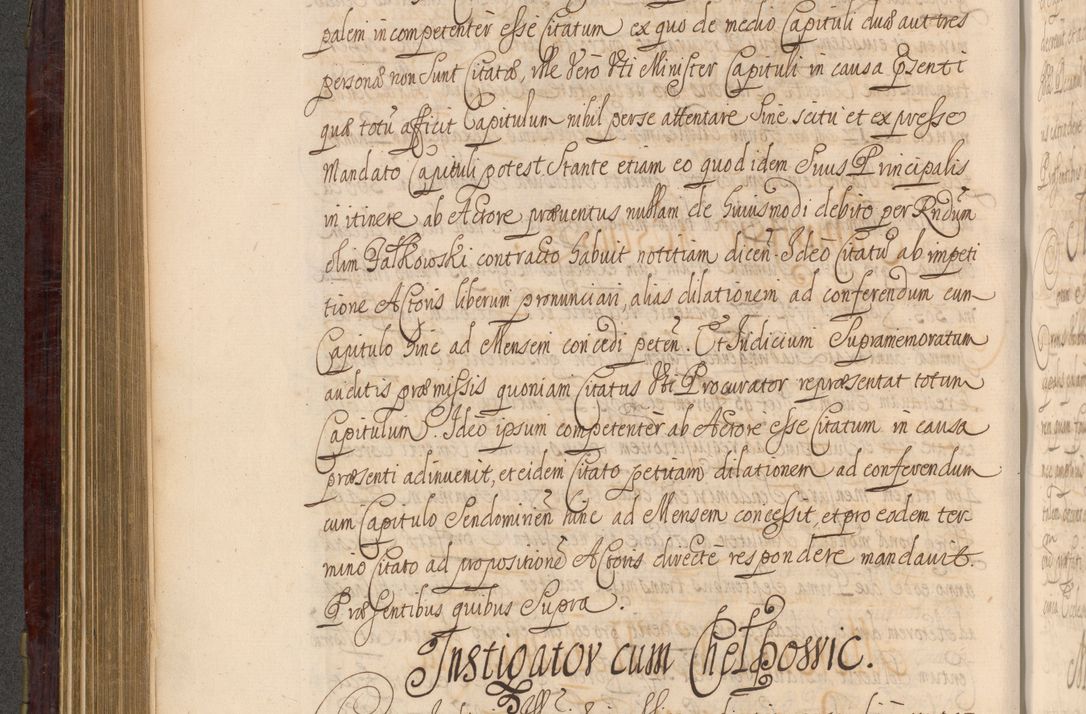 palem incompetenter esse Citatum ex quo de medio Capituli duæ aut tres
personæ non sunt Citatæ, ille vero uti Minister Capituli in causa pnti
quæ totũ afficit Capitulum nihil per se attentare sine scitu et expresso
Mandato Capituli potest. Stante etiam eo quod idem suus Principalis
in itinere ab Actore præventus nullam de huiusmodi debito per Rndũm
olim Jałkowski contracto habuit notitiam dicen. Ideo Citatũ ab impeti
tione Actoris liberum pronunciari, alias dilationem ad conferendum cum
Capitulo hinc ad Mensem concedi peten. Et Judicium Supramemoratum
auditis præmissis quoniam Citatus uti Procurator repræsentat totum
Capitulum. Ideo ipsum competenter ab Actore esse Citatum in causa
præsenti adinuenit, et eidem Citato petitam dilationem ad conferendum
cum Capitulo Sendomirien hinc ad Mensem concessit, et pro eodem ter-
mino Citato ad propositionẽ Actoris directe respondere mandavit.
Præsentibus quibus Supra.
Instigator cum Chełkowic.